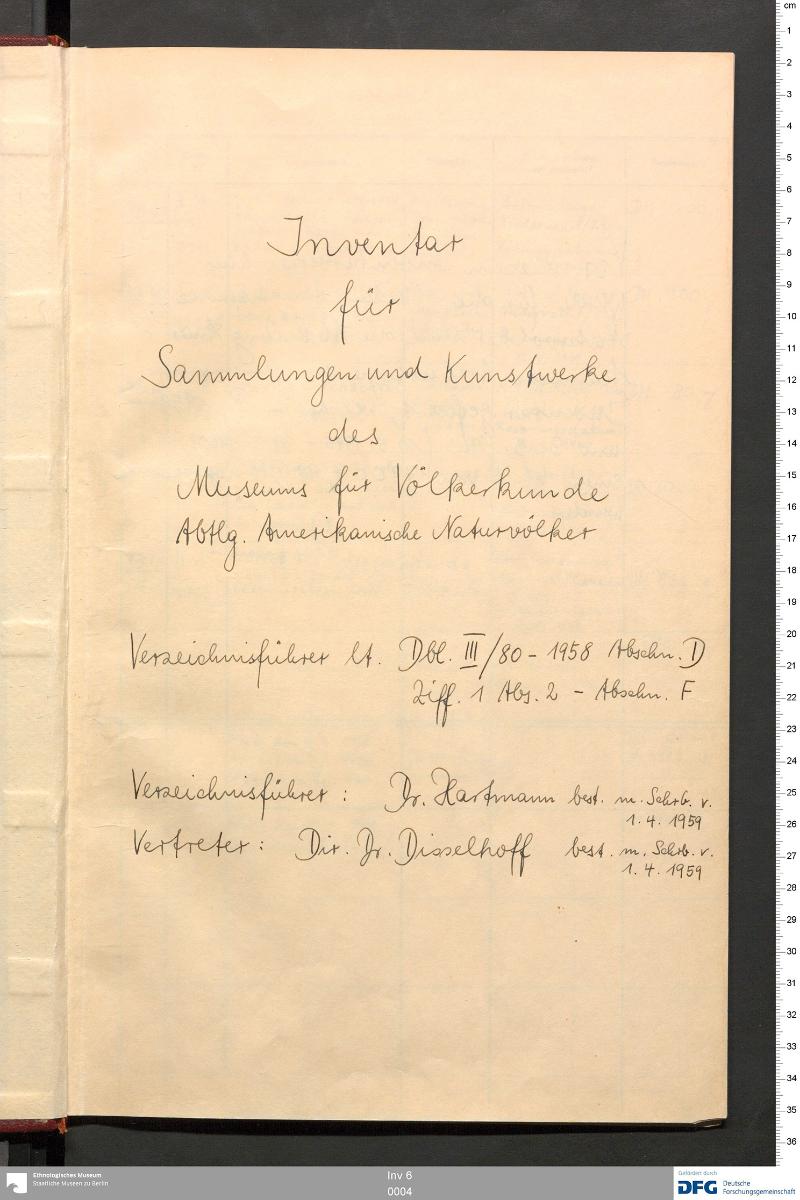 Inventar
für
Sammlungen und Kunstwerke
des
Museums für Völkerkunde
Abtlg. Amerikanische Naturvölker
Verzeichnisführer lt. Dbl. III/80 - 1958 Abschn. D
Ziff. 1 Abs. 2 - Abschn. F
Verzeichnisführer : Dr. Hartmann best. m. Schrb. v.
1. 4. 1959
Vertreter : Dir. Dr. Disselhoff best. m. Schrb. v.
1. 4. 1959
cm
1
2
3
4
5
6
7
8
9
10
11
12
13
14
15
16
17
18
19
20
21
22
23
24
25
26
27
28
29
30
31
32
33
34
35
36
Ethnologisches Museum
Staatliche Museen zu Berlin
Inv 6
0004
Gefördert durch
DFG Deutsche
Forschungsgemeinschaft